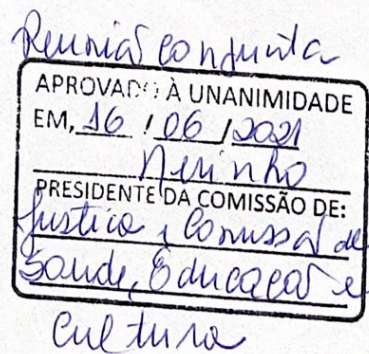 Reunião conjunta
APROVADO À UNANIMIDADE
EM, 16 / 06 / 2021
Nerinho
PRESIDENTE DA COMISSÃO DE:
Justiça e Comissão de
Saúde, Educação e
Cultura